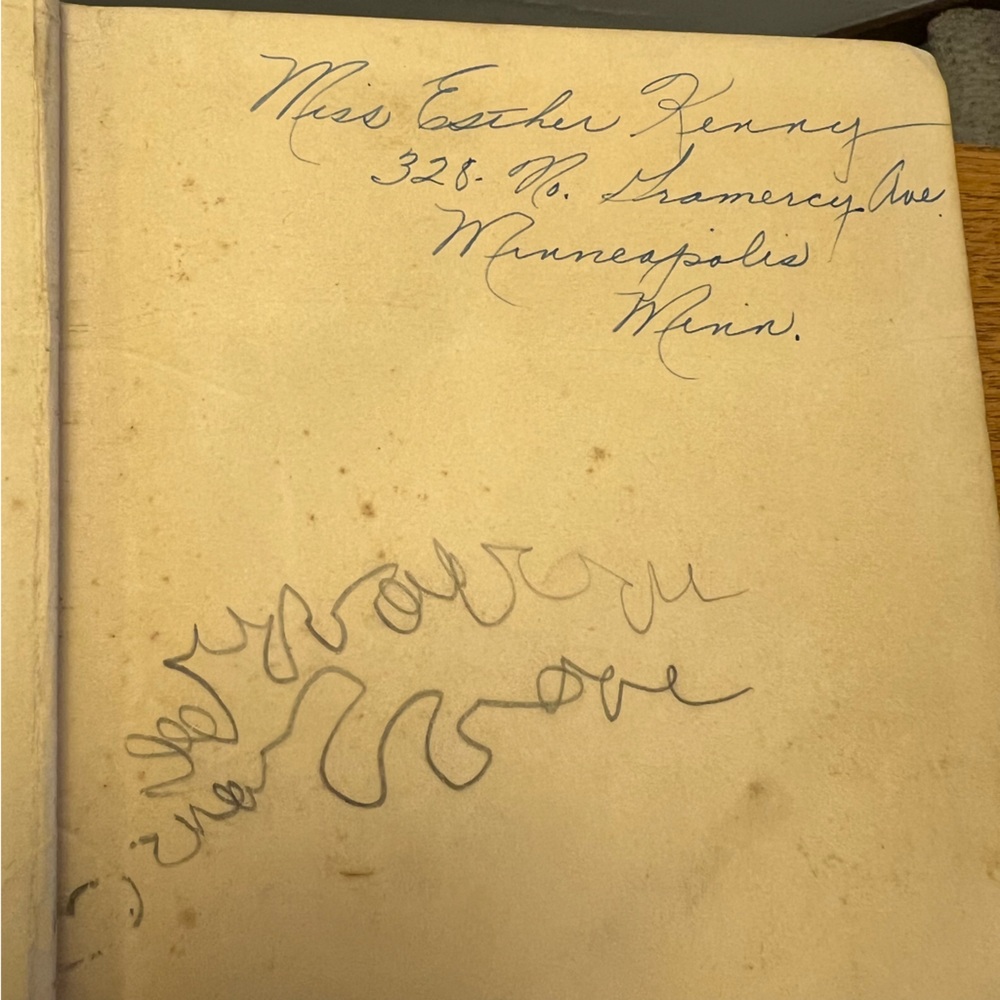 Miss Esther Kenny
328. No. Gramercy Ave.
Minneapolis
Minn.